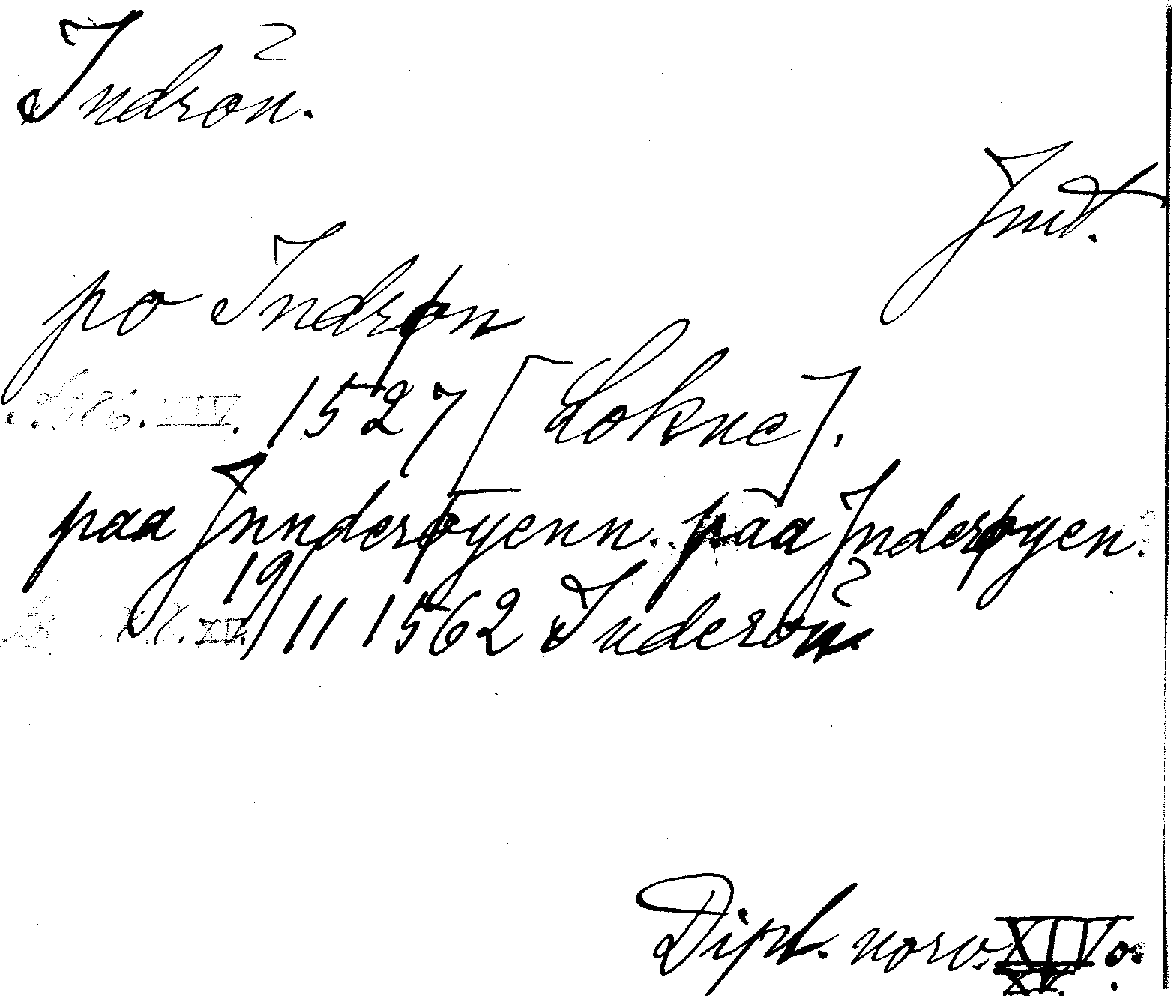 Indrön.
Jmt.
po Indrøn
1527 [Lokne].
paa Jnnderøyenn. paa Jnderøyen.
19/11 1562 Inderön
Dipl. norv. XIV o.
XV.